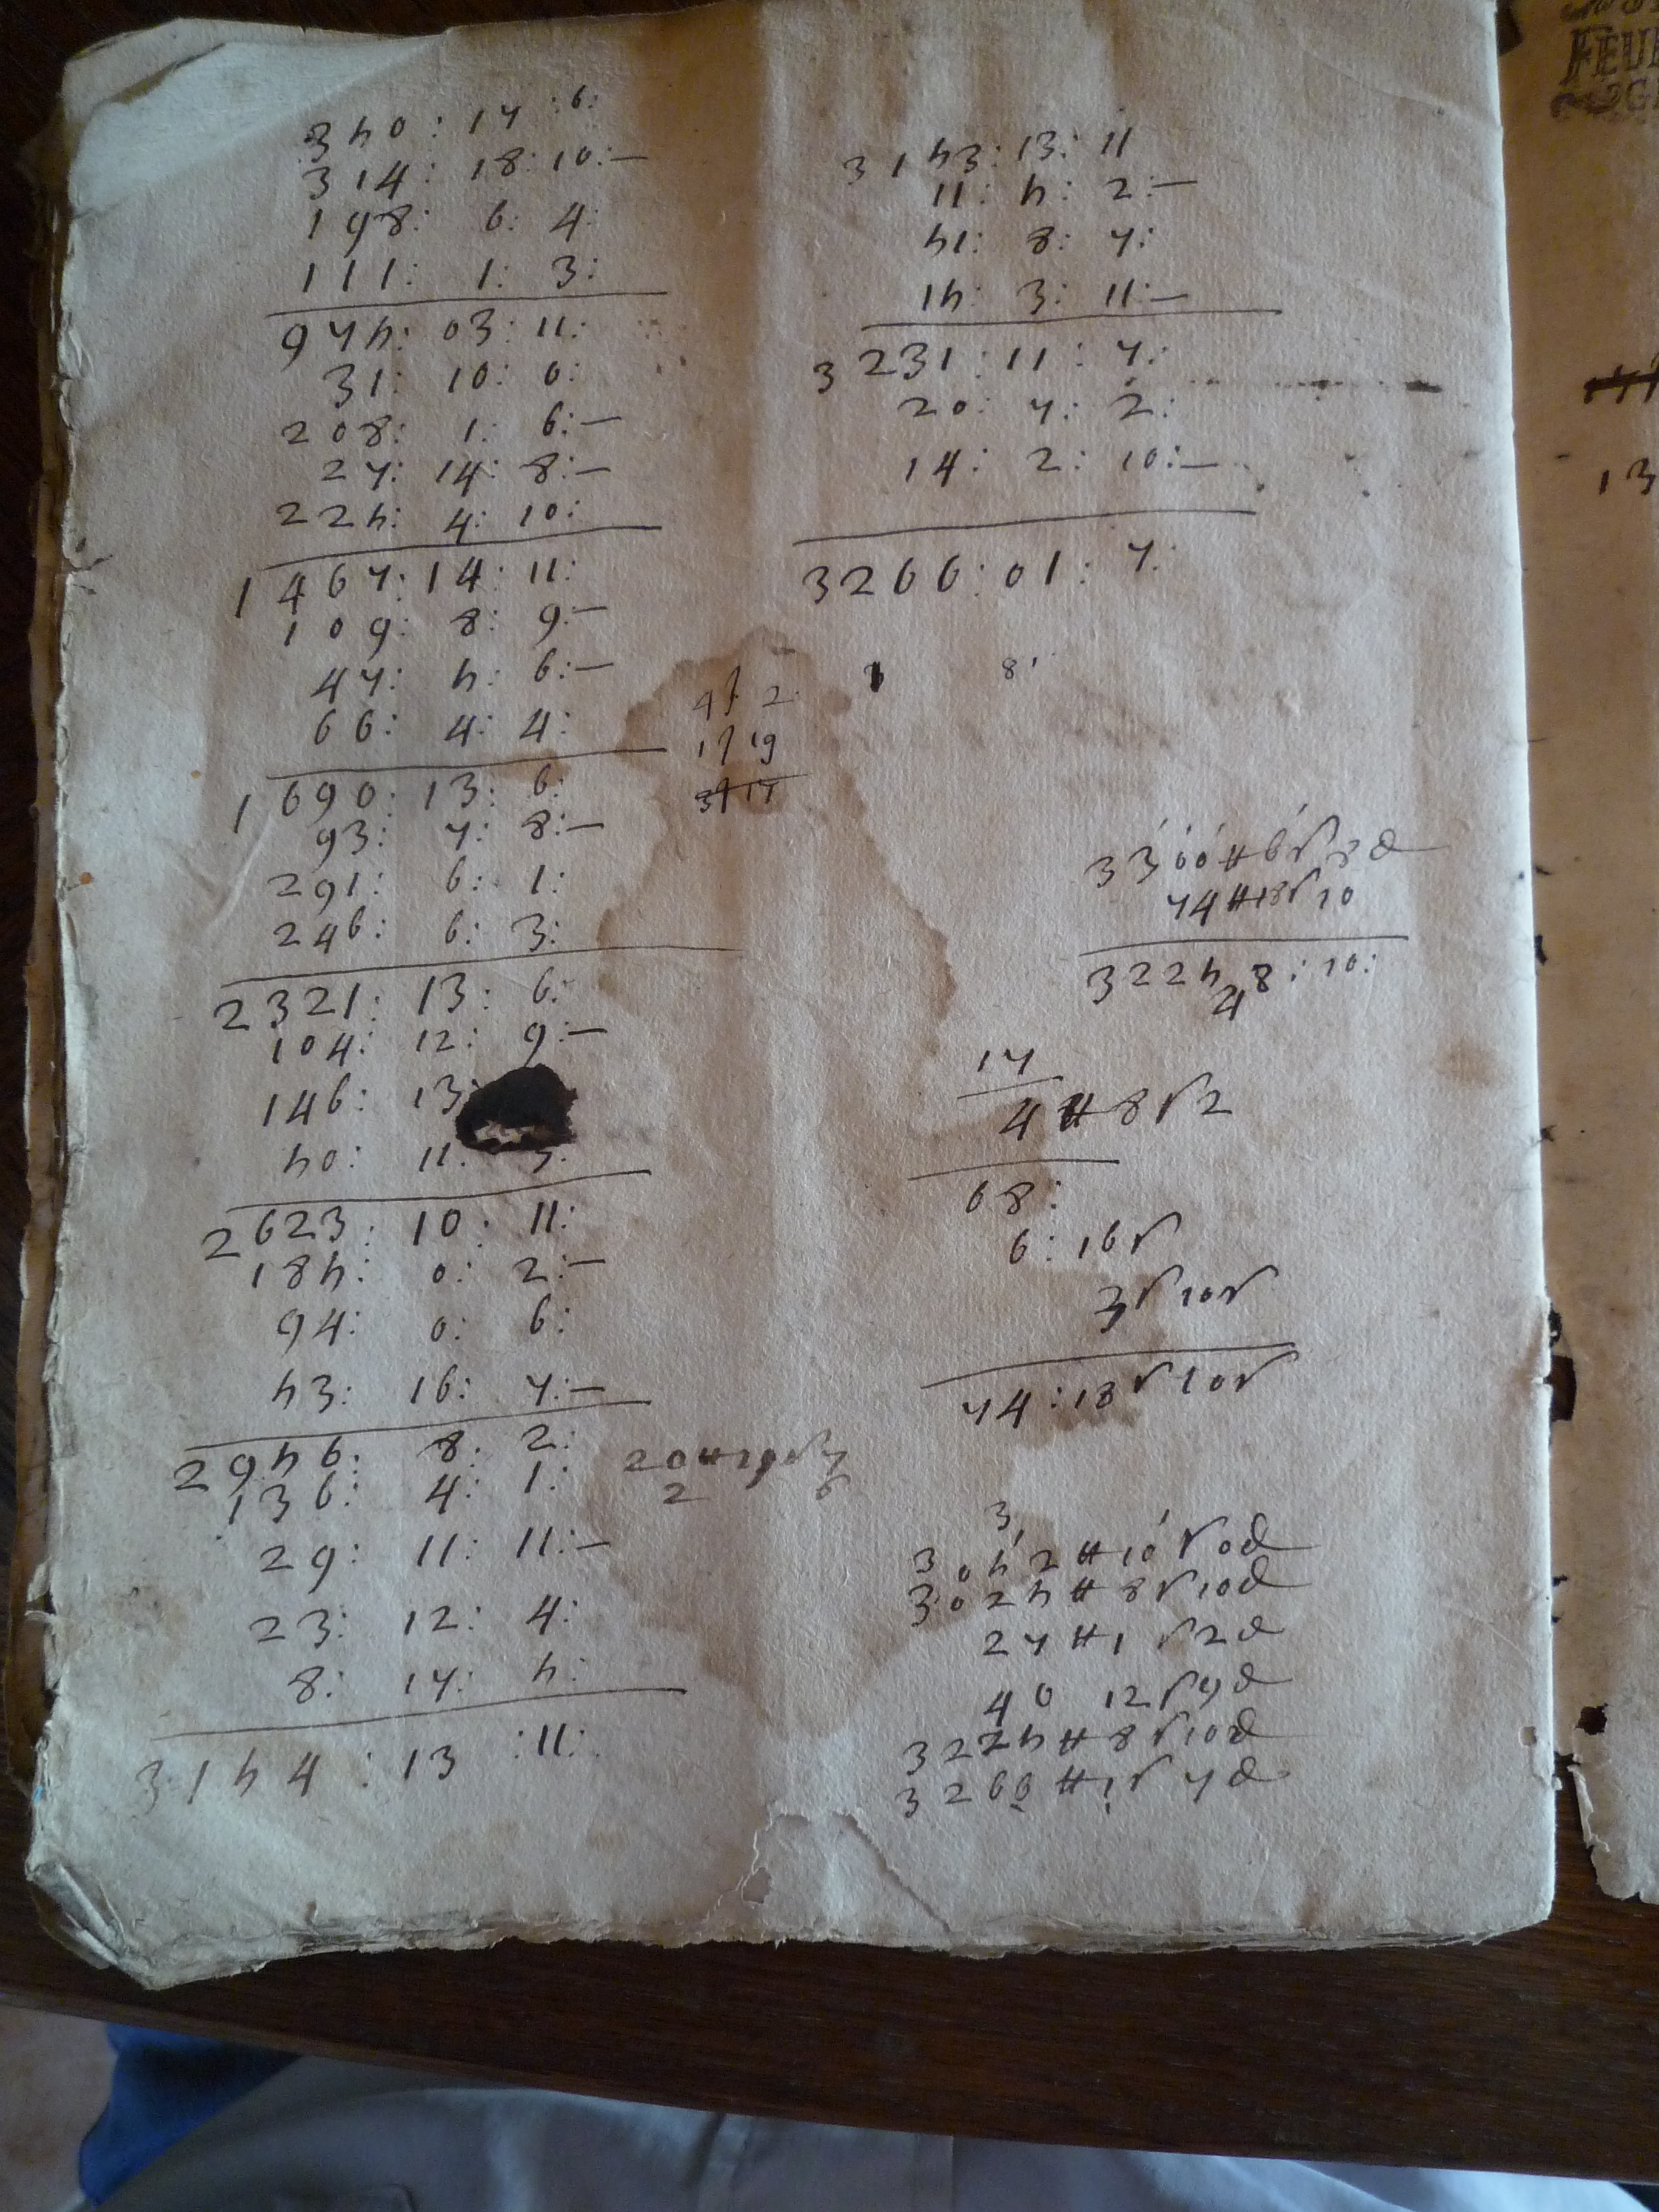 350:17:6:
314:18:10:—
198:6:4:
111:1:3:
975:03:11:
31:10:0:
208:1:6:—
27:14:8:—
225:4:10:
1467:14:11:
109:8:9:—
47:5:6:—
66:4:4:
1690:13:6:
93:7:8:—
291:6:1:
246:6:3:
2321:13:6:
104:12:9:—
146:13
50:11:
2623:10:11:
185:0:2:—
94:0:6:
53:16:7:—
2956:8:2:
136:4:1:
29:11:11:—
23:12:4:
8:17:5:
3154:13:11:
3153:13:11
11:5:2:—
51:8:7:
15:3:11:—
3231:11:7:
20:7:2:
14:2:10:—
3266:01:7:
8
3300₶6s8d
74₶18s10
3225 8:10:
17
4₶8s2
68:
6:16s
3s10s
74:18s10s
3
3052₶10s0d
3025₶8s10d
27₶1s2d
40 12s9d
3225₶8s10d
3266₶1s7d
FEU
13